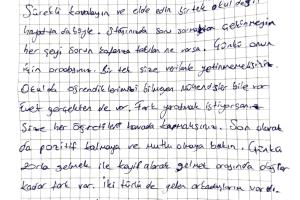 Sürekli kovalayın ve elde edin sırtek okul değil
hayatta da böyle. stajında soru sormaktan çekinmeyin
her şeyi sorun kafanıza takılan ne varsa. Çünkü onun
için oradasınız. Bir tek size verilenle yetinmemelisiniz.
Okulda öğrendiklerimizi bilmeyen mühendisler bile var
Evet gerçekten de var. Fark yaratmak istiyorsanız
Size her öğretileni havada kapmalısınız. Son olarak
da pozitif kalmaya ve mutlu olmaya bakın. Çünkü
zorla gelmek ile keyif alarak gelmek arasında dağlar
kadar fark var. İki türlü de gelen arkadaşlarım vardı.